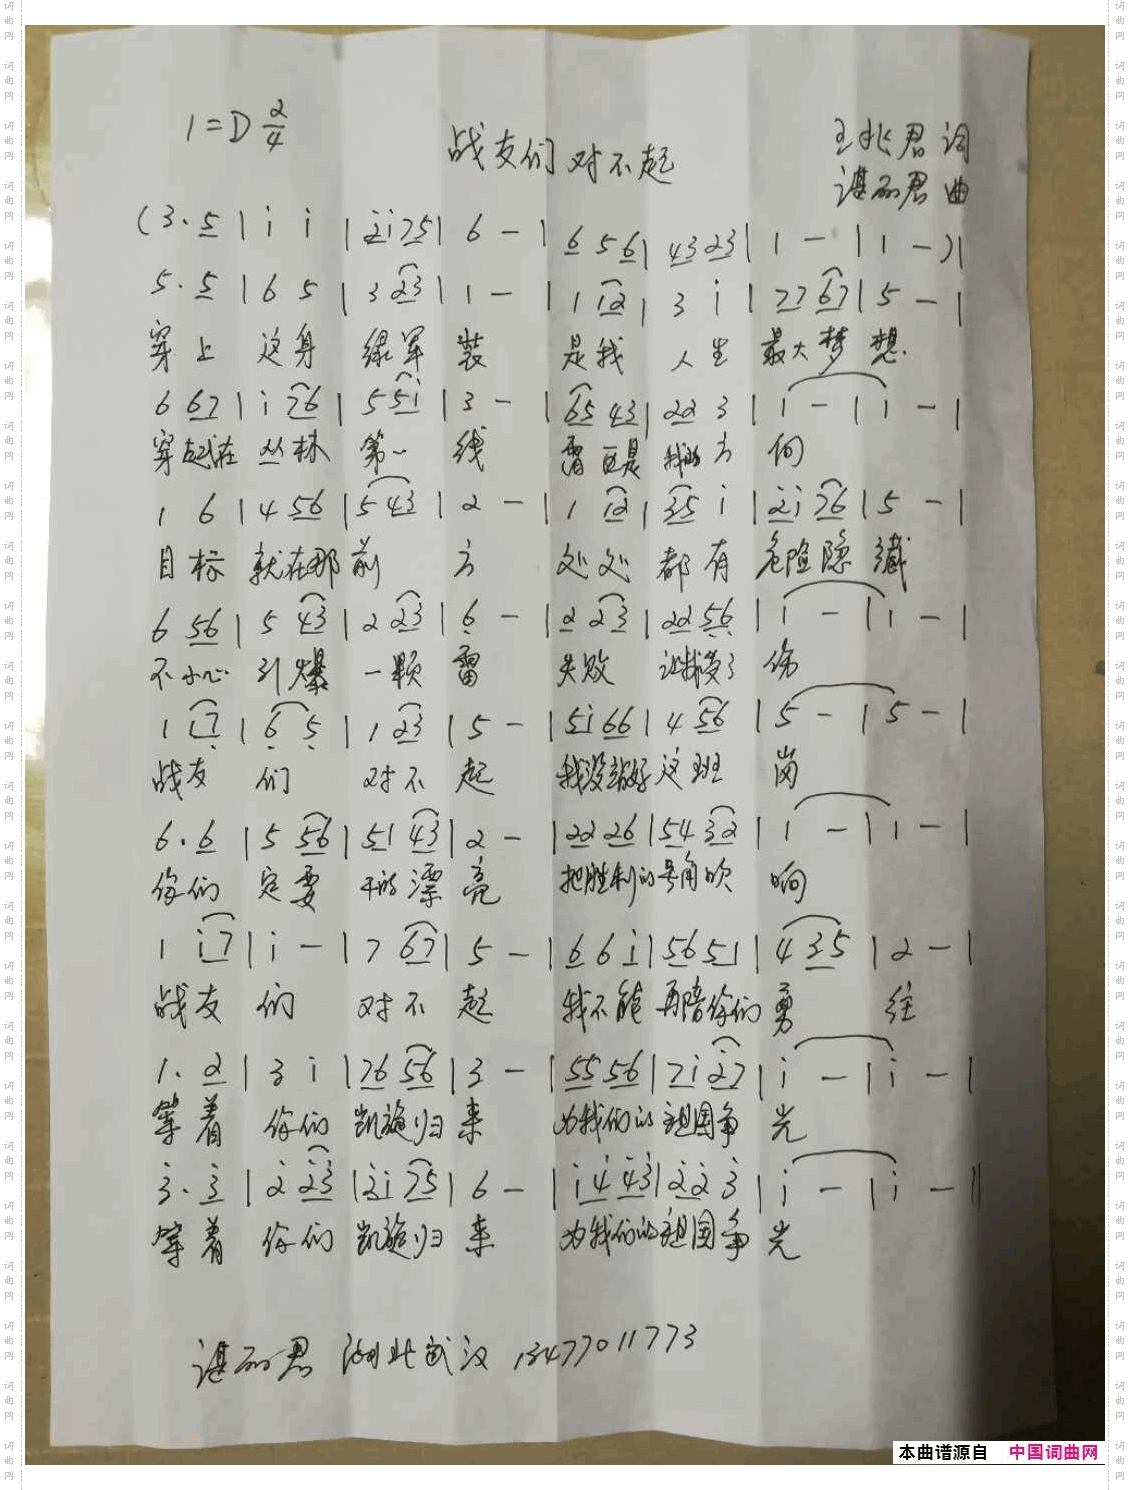 1=D 2/4
战友们对不起
王兆君 词
谌丽君 曲
(3·5|i i|2i75|6 -|6 56|4323|1 -|1 -)|
5·5|6 5|3 23|1 -|1 12|3 i|7767|5 -|
穿上 这身 绿军 装 是我 人生 最大梦 想.
6 67|i 76|5 5i|3 -|65 43|22 3|1 -|1 -|
穿越在 丛林 第一 线 雷区是 我的方 向
1 6|4 56|5 43|2 -|1 12|35 i|2i76|5 -|
目标 就在那前 方 处处 都有 危险隐 藏
6 56|5 43|2 23|6 -|2 23|2256|1 -|1 -|
不小心 引爆 一颗 雷 失败 让我受了 伤
1 17|6 5|1 23|5 -|5i66|4 56|5 -|5 -|
战友 们 对不 起 我没站好 这班 岗
6·6|5 56|51 43|2 -|22 26|5432|1 -|1 -|
你们 定要 干的漂 亮 把胜利的号角吹 响
1 i7|i -|7 67|5 -|6 6i|5651|4 35|2 -|
战友 们 对不 起 我不能 再陪你们 勇 往
1·2|3 i|76 56|3 -|5556|7i27|i -|i -|
等着 你们 凯旋归 来 为我们的 祖国争 光
3·3|2 23|2i 75|6 -|i4 43|22 3|i -|i -||
等着 你们 凯旋归 来 为我们的祖国争 光
谌丽君 湖北武汉 13477011773
本曲谱源自 中国词曲网